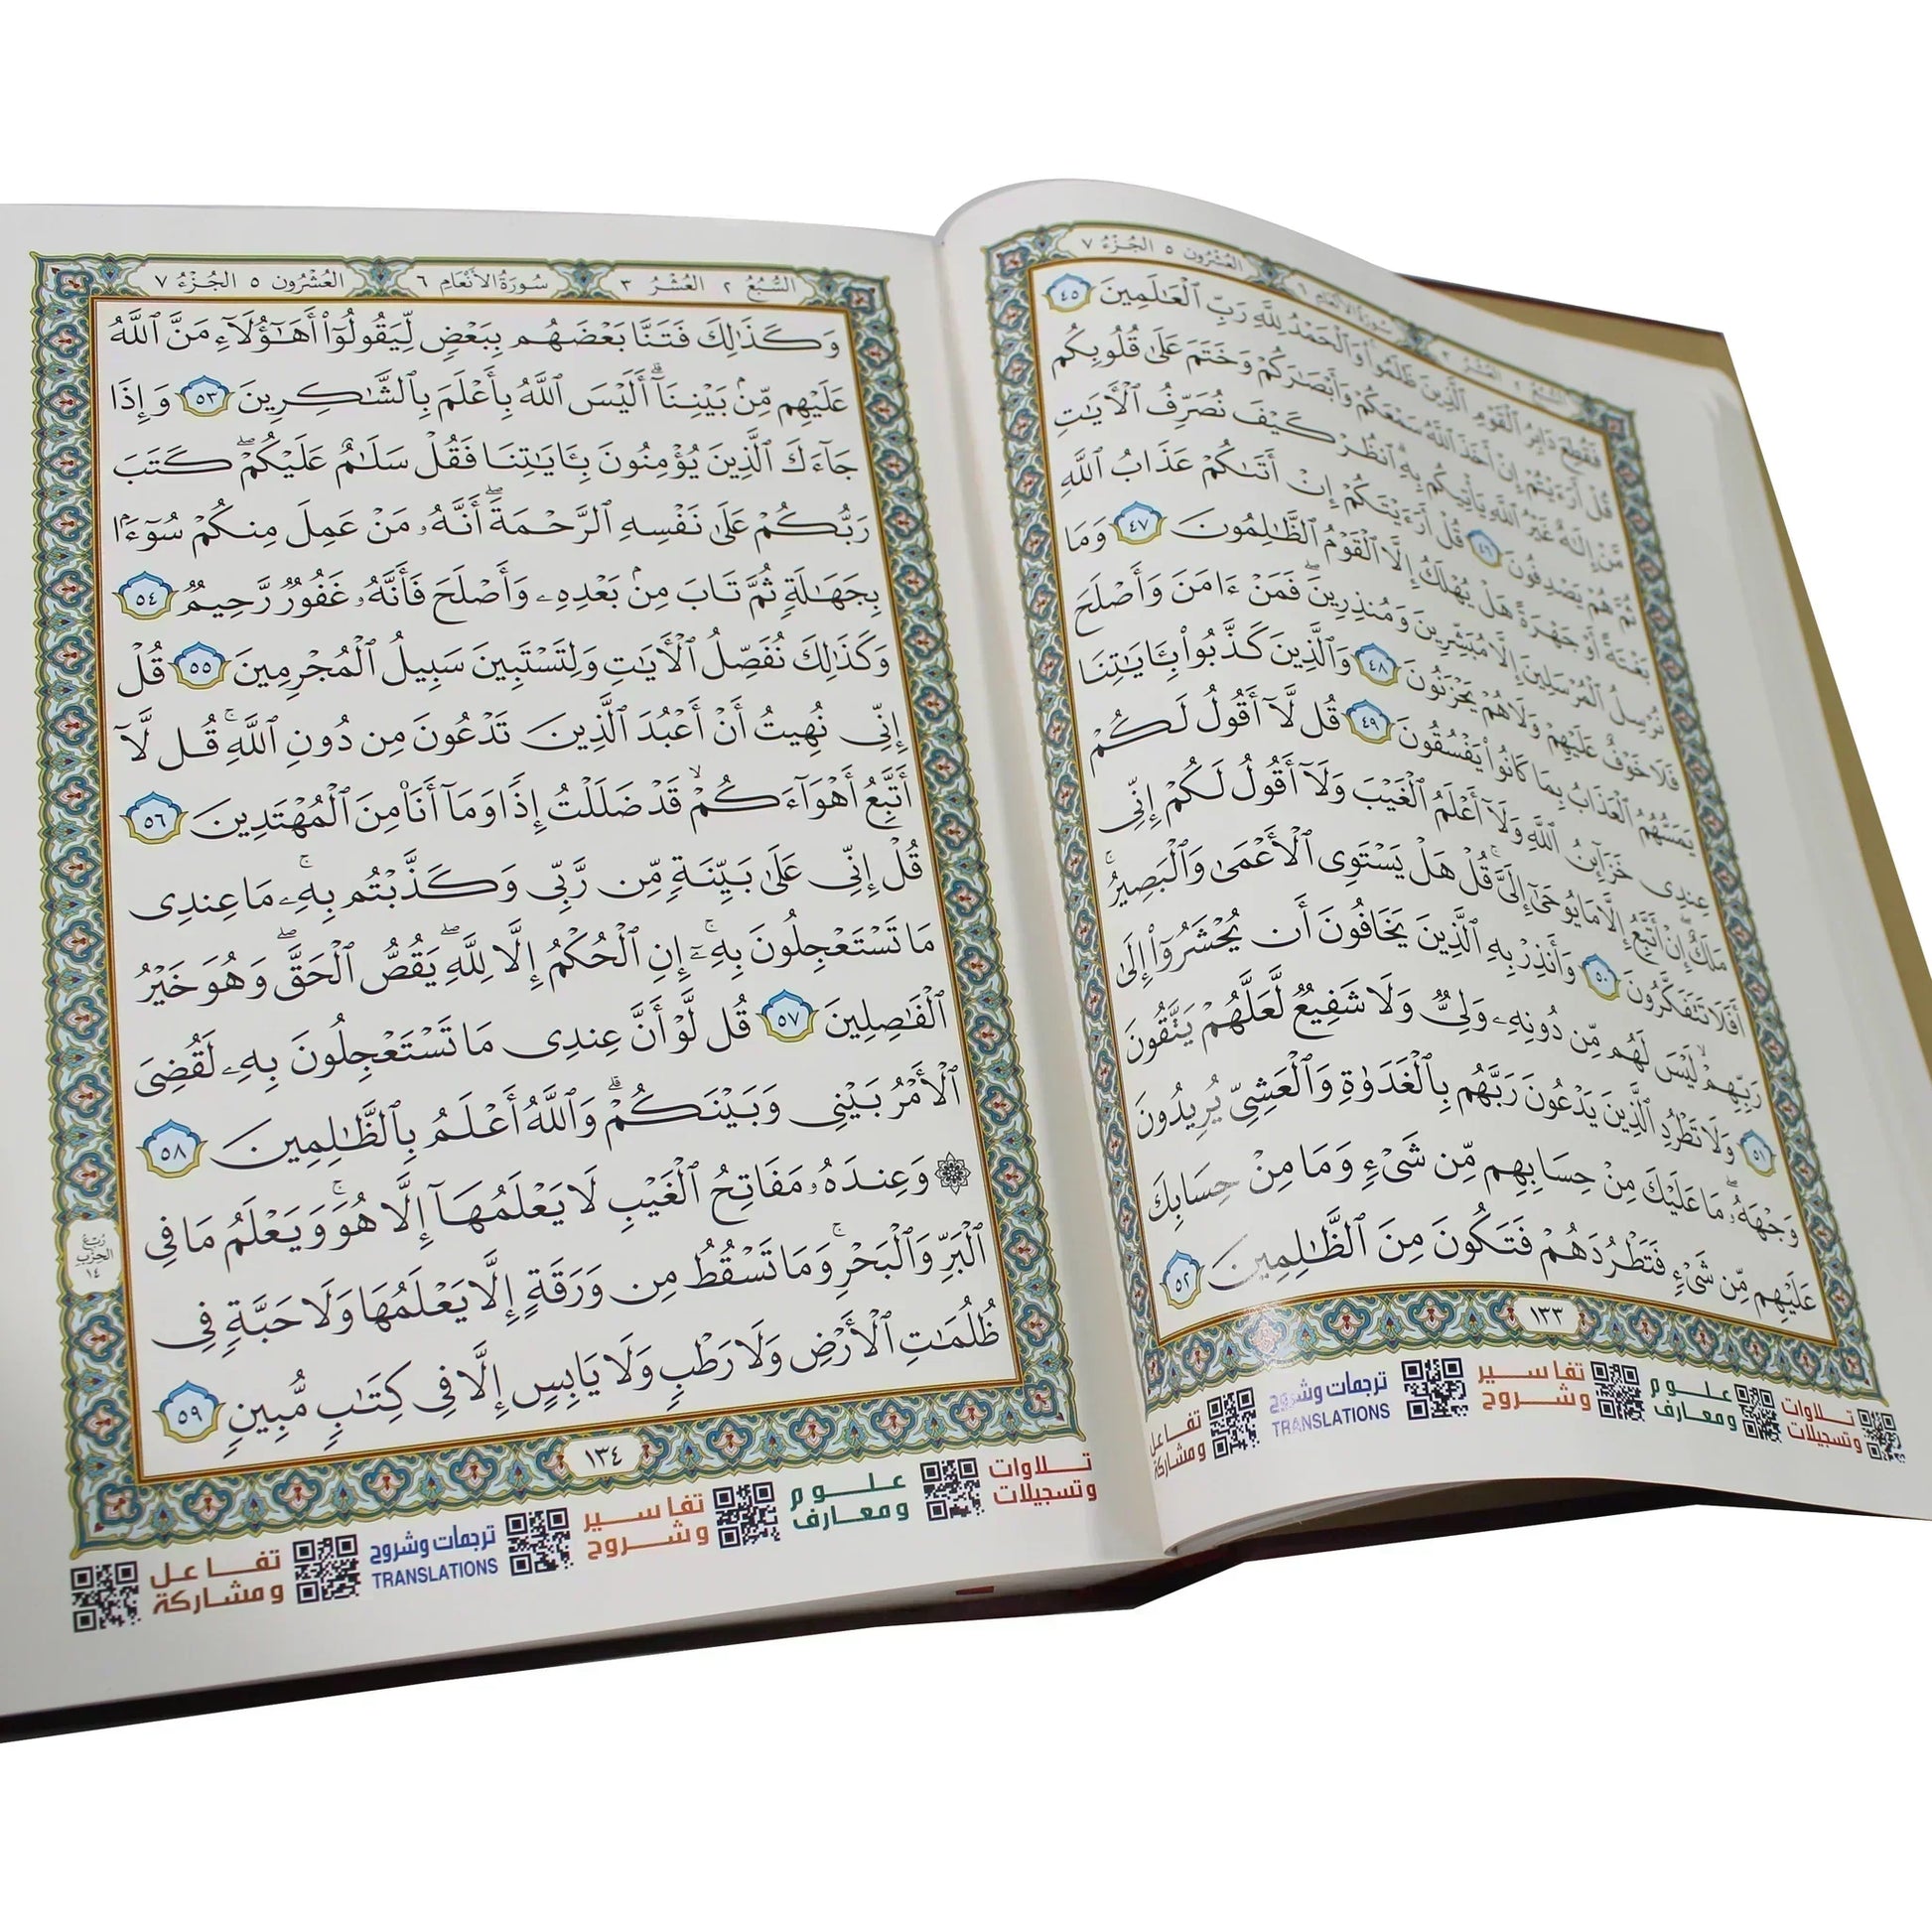 الجُزْءُ ٧ العُشْرُون ٥ سُورَةُ الأَنْعَام ٦ العُشْرُ ٣ السُّبُعُ ٢
فَقُطِعَ دَابِرُ ٱلْقَوْمِ ٱلَّذِينَ ظَلَمُوا۟ وَٱلْحَمْدُ لِلَّهِ رَبِّ ٱلْعَٰلَمِينَ ٤٥
قُلْ أَرَءَيْتُمْ إِنْ أَخَذَ ٱللَّهُ سَمْعَكُمْ وَأَبْصَٰرَكُمْ وَخَتَمَ عَلَىٰ قُلُوبِكُم
مَّنْ إِلَٰهٌ غَيْرُ ٱللَّهِ يَأْتِيكُم بِهِ ۗ ٱنظُرْ كَيْفَ نُصَرِّفُ ٱلْءَايَٰتِ
ثُمَّ هُمْ يَصْدِفُونَ ٤٦ قُلْ أَرَءَيْتَكُمْ إِنْ أَتَىٰكُمْ عَذَابُ ٱللَّهِ
بَغْتَةً أَوْ جَهْرَةً هَلْ يُهْلَكُ إِلَّا ٱلْقَوْمُ ٱلظَّٰلِمُونَ ٤٧ وَمَا
نُرْسِلُ ٱلْمُرْسَلِينَ إِلَّا مُبَشِّرِينَ وَمُنذِرِينَ ۖ فَمَنْ ءَامَنَ وَأَصْلَحَ
فَلَا خَوْفٌ عَلَيْهِمْ وَلَا هُمْ يَحْزَنُونَ ٤٨ وَٱلَّذِينَ كَذَّبُوا۟ بِـَٔايَٰتِنَا
يَمَسُّهُمُ ٱلْعَذَابُ بِمَا كَانُوا۟ يَفْسُقُونَ ٤٩ قُل لَّآ أَقُولُ لَكُمْ
عِندِى خَزَآئِنُ ٱللَّهِ وَلَآ أَعْلَمُ ٱلْغَيْبَ وَلَآ أَقُولُ لَكُمْ إِنِّى
مَلَكٌ ۖ إِنْ أَتَّبِعُ إِلَّا مَا يُوحَىٰٓ إِلَىَّ ۚ قُلْ هَلْ يَسْتَوِى ٱلْأَعْمَىٰ وَٱلْبَصِيرُ ۚ
أَفَلَا تَتَفَكَّرُونَ ٥٠ وَأَنذِرْ بِهِ ٱلَّذِينَ يَخَافُونَ أَن يُحْشَرُوٓا۟ إِلَىٰ
رَبِّهِمْ ۙ لَيْسَ لَهُم مِّن دُونِهِۦ وَلِىٌّ وَلَا شَفِيعٌ لَّعَلَّهُمْ يَتَّقُونَ
٥١ وَلَا تَطْرُدِ ٱلَّذِينَ يَدْعُونَ رَبَّهُم بِٱلْغَدَوٰةِ وَٱلْعَشِىِّ يُرِيدُونَ
وَجْهَهُۥ ۖ مَا عَلَيْكَ مِنْ حِسَابِهِم مِّن شَىْءٍ وَمَا مِنْ حِسَابِكَ
عَلَيْهِم مِّن شَىْءٍ فَتَطْرُدَهُمْ فَتَكُونَ مِنَ ٱلظَّٰلِمِينَ ٥٢
١٣٣
تلاوات وتسجيلات
علوم ومعارف
تفاسير وشروح
ترجمات وشروح
TRANSLATIONS
تفاعل ومشاركة
الجُزْءُ ٧ العُشْرُون ٥ سُورَةُ الأَنْعَام ٦ العُشْرُ ٣ السُّبُعُ ٢
وَكَذَٰلِكَ فَتَنَّا بَعْضَهُم بِبَعْضٍ لِّيَقُولُوٓا۟ أَهَٰٓؤُلَآءِ مَنَّ ٱللَّهُ
عَلَيْهِم مِّنۢ بَيْنِنَآ ۗ أَلَيْسَ ٱللَّهُ بِأَعْلَمَ بِٱلشَّٰكِرِينَ ٥٣ وَإِذَا
جَآءَكَ ٱلَّذِينَ يُؤْمِنُونَ بِـَٔايَٰتِنَا فَقُلْ سَلَٰمٌ عَلَيْكُمْ ۖ كَتَبَ
رَبُّكُمْ عَلَىٰ نَفْسِهِ ٱلرَّحْمَةَ ۖ أَنَّهُۥ مَنْ عَمِلَ مِنكُمْ سُوٓءًۢا
بِجَهَٰلَةٍ ثُمَّ تَابَ مِنۢ بَعْدِهِۦ وَأَصْلَحَ فَأَنَّهُۥ غَفُورٌ رَّحِيمٌ ٥٤
وَكَذَٰلِكَ نُفَصِّلُ ٱلْءَايَٰتِ وَلِتَسْتَبِينَ سَبِيلُ ٱلْمُجْرِمِينَ ٥٥ قُلْ
إِنِّى نُهِيتُ أَنْ أَعْبُدَ ٱلَّذِينَ تَدْعُونَ مِن دُونِ ٱللَّهِ ۚ قُل لَّآ
أَتَّبِعُ أَهْوَآءَكُمْ ۙ قَدْ ضَلَلْتُ إِذًا وَمَآ أَنَا۠ مِنَ ٱلْمُهْتَدِينَ ٥٦
قُلْ إِنِّى عَلَىٰ بَيِّنَةٍ مِّن رَّبِّى وَكَذَّبْتُم بِهِۦ ۚ مَا عِندِى
مَا تَسْتَعْجِلُونَ بِهِۦٓ ۚ إِنِ ٱلْحُكْمُ إِلَّا لِلَّهِ ۖ يَقُصُّ ٱلْحَقَّ ۖ وَهُوَ خَيْرُ
ٱلْفَٰصِلِينَ ٥٧ قُل لَّوْ أَنَّ عِندِى مَا تَسْتَعْجِلُونَ بِهِۦ لَقُضِىَ
ٱلْأَمْرُ بَيْنِى وَبَيْنَكُمْ ۗ وَٱللَّهُ أَعْلَمُ بِٱلظَّٰلِمِينَ ٥٨
۞ وَعِندَهُۥ مَفَاتِحُ ٱلْغَيْبِ لَا يَعْلَمُهَآ إِلَّا هُوَ ۚ وَيَعْلَمُ مَا فِى
ٱلْبَرِّ وَٱلْبَحْرِ ۚ وَمَا تَسْقُطُ مِن وَرَقَةٍ إِلَّا يَعْلَمُهَا وَلَا حَبَّةٍ فِى
ظُلُمَٰتِ ٱلْأَرْضِ وَلَا رَطْبٍ وَلَا يَابِسٍ إِلَّا فِى كِتَٰبٍ مُّبِينٍ ٥٩
رُبْع
الحِزْب
١٤
١٣٤
تلاوات وتسجيلات
علوم ومعارف
تفاسير وشروح
ترجمات وشروح
TRANSLATIONS
تفاعل ومشاركة